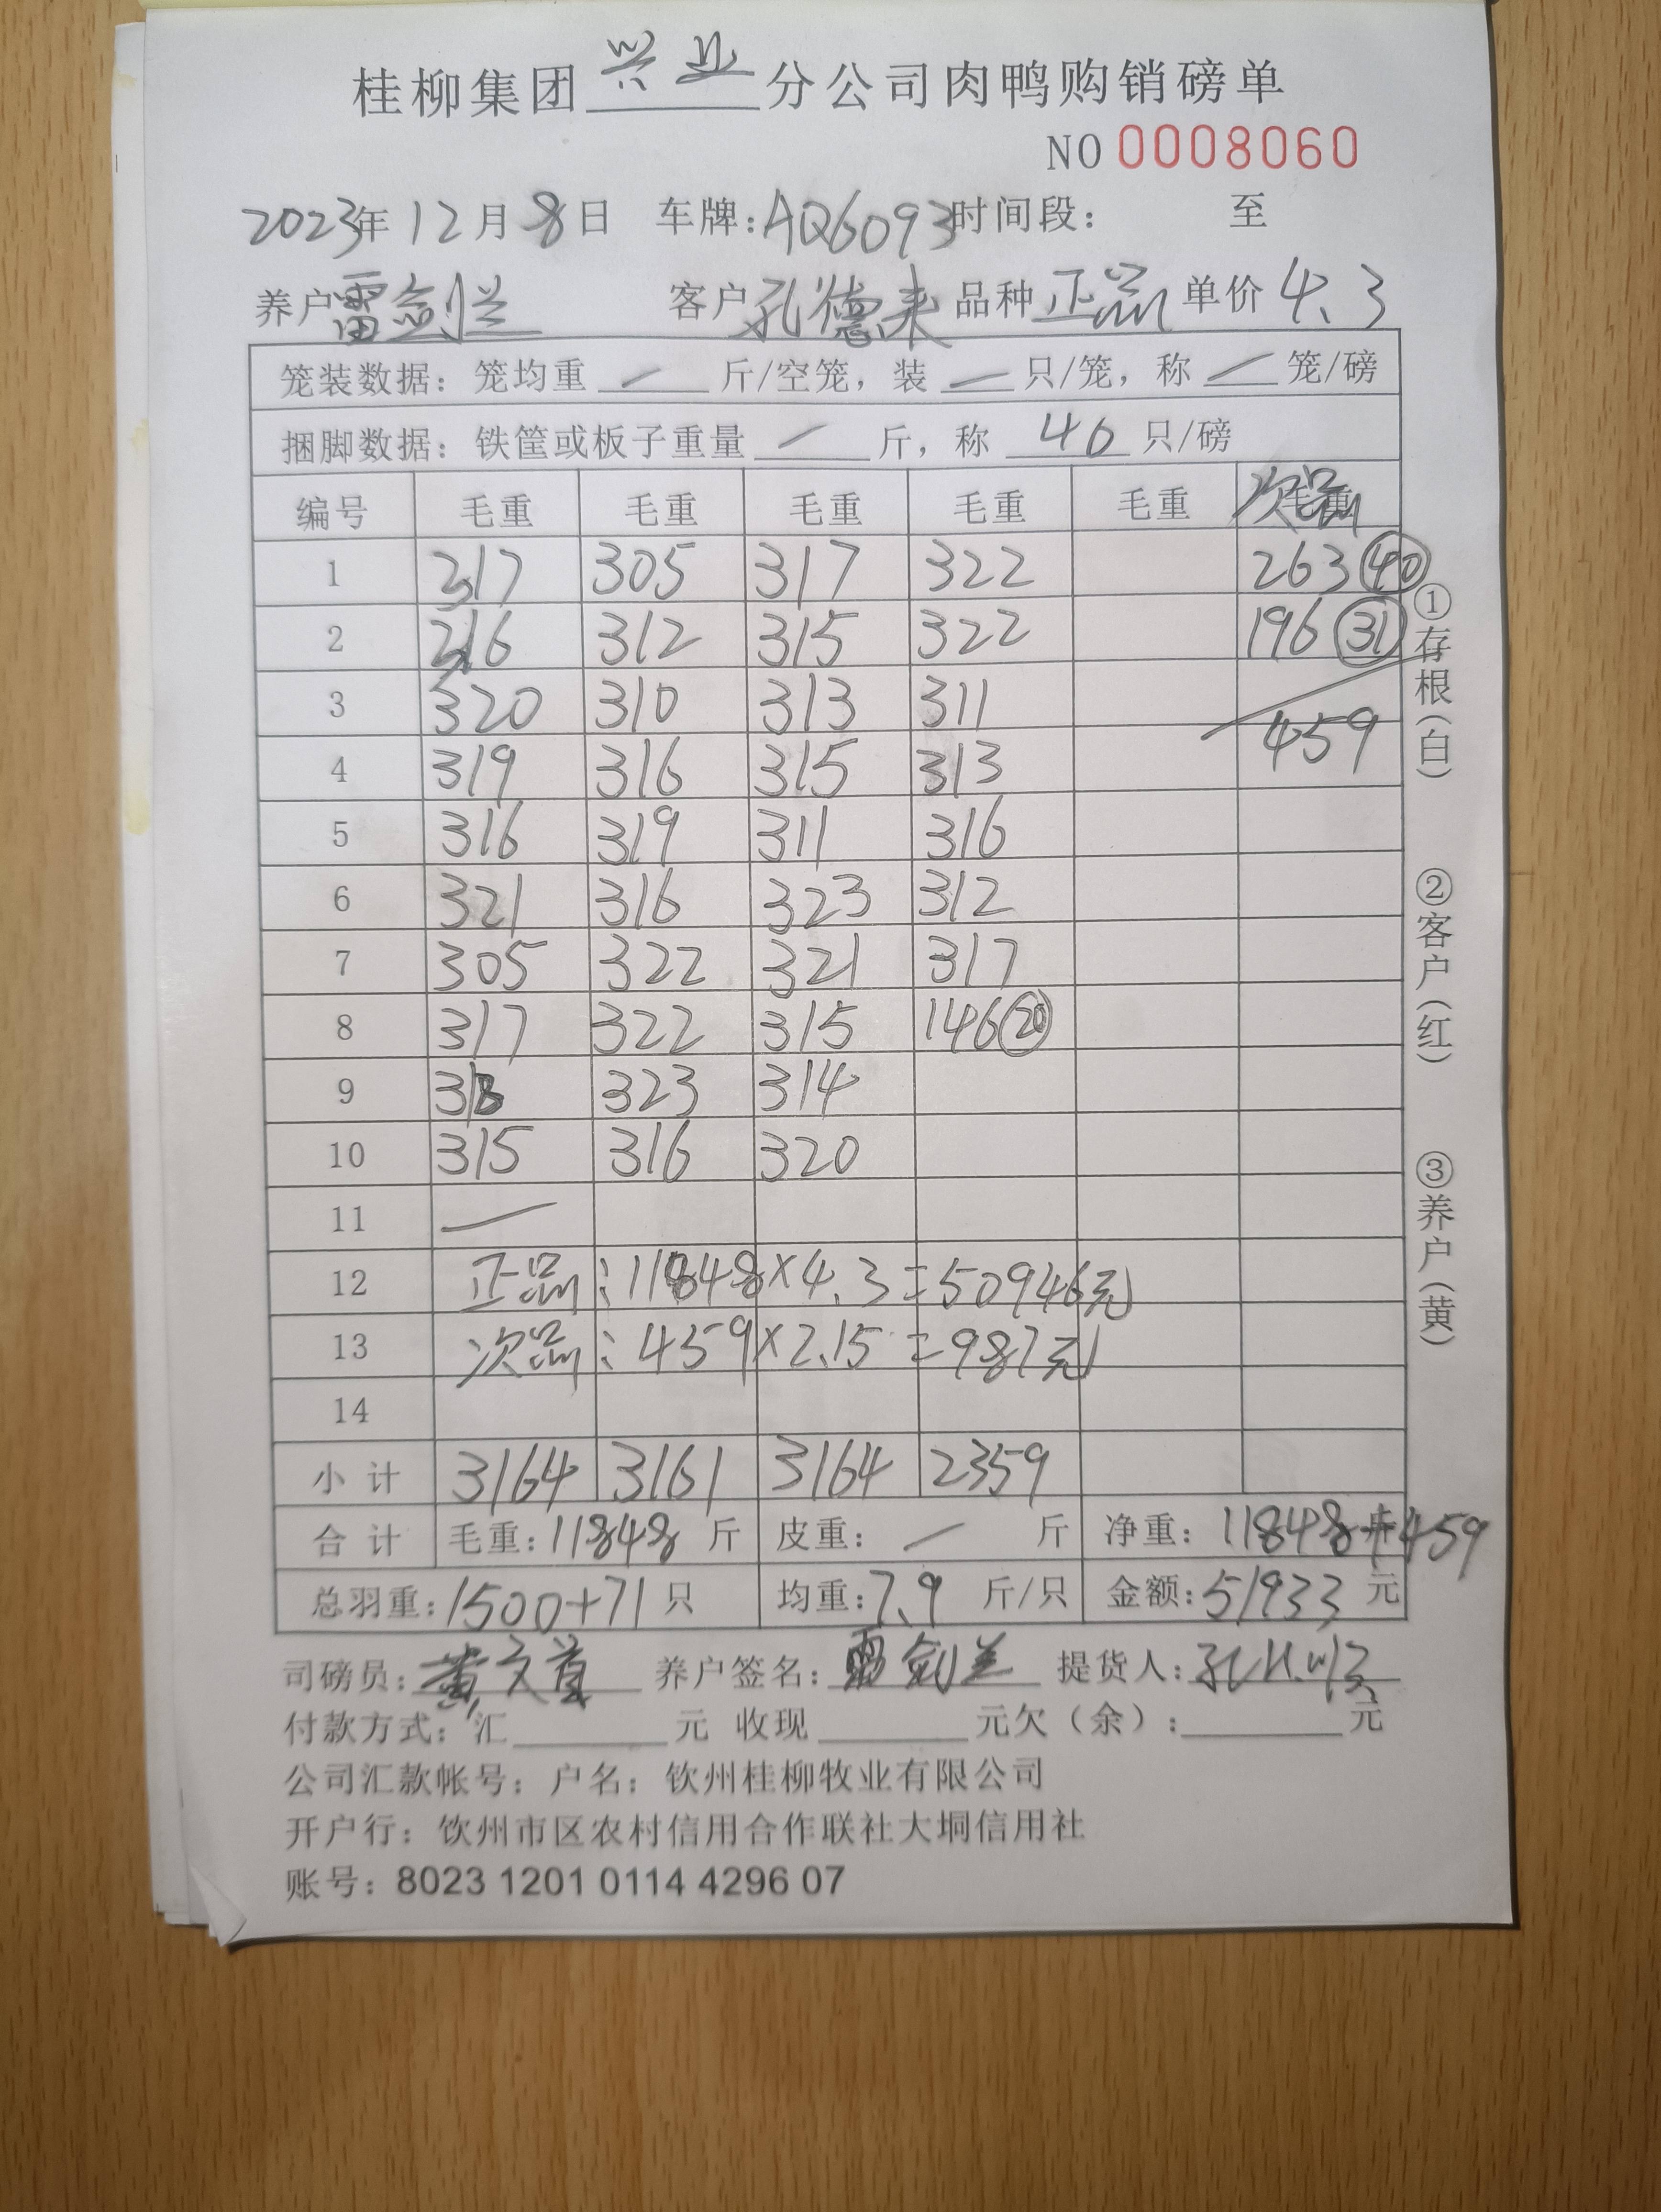 桂柳集团 兴业 分公司肉鸭购销磅单
NO 0008060
2023年 12月 8日 车牌:AQ6093 时间段: 至
养户 雷剑兰 客户 孔德来 品种 正品 单价 4.3
笼装数据: 笼均重 — 斤/空笼, 装 — 只/笼, 称 — 笼/磅
捆脚数据: 铁筐或板子重量 — 斤, 称 40 只/磅
编号 毛重 毛重 毛重 毛重 毛重 次品
1 317 305 317 322 263 40
2 316 312 315 322 196 31
3 320 310 313 311
4 319 316 315 313 459
5 316 319 311 316
6 321 316 323 312
7 305 322 321 317
8 317 322 315 146 20
9 318 323 314
10 315 316 320
11 —
12 正品:11848×4.3=50946元
13 次品:459×2.15=987元
14
小计 3164 3161 3164 2359
合计 毛重:11848 斤 皮重: — 斤 净重: 11848+459
总羽重:1500+71 只 均重:7.9 斤/只 金额:51933 元
司磅员: 黄 养户签名: 雷剑兰 提货人: 孔
付款方式: 汇 元 收现 元欠(余): 元
公司汇款帐号: 户名: 钦州桂柳牧业有限公司
开户行: 饮州市区农村信用合作联社大垌信用社
账号: 8023 1201 0114 4296 07
①存根(白)
②客户(红)
③养户(黄)